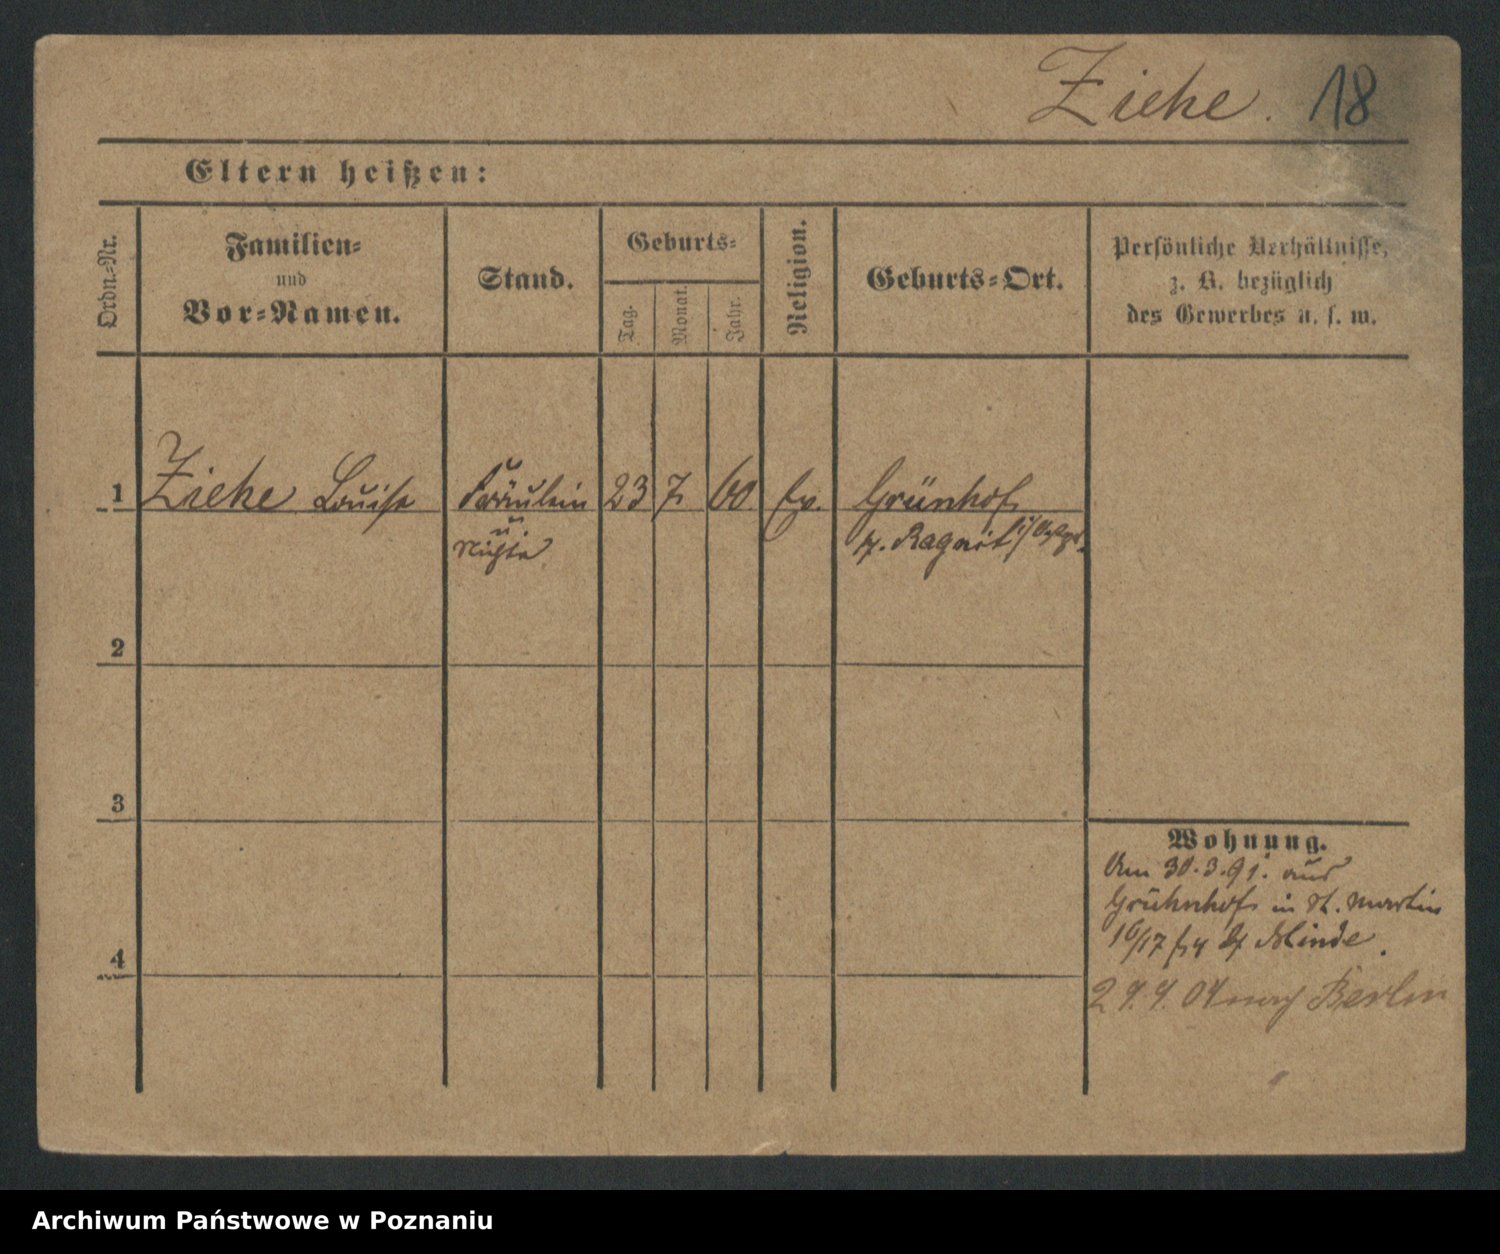 Ziehe. 18
Eltern heißen:
Ordn.-Nr.
Familien-
und
Vor-Namen.
Stand.
Geburts-
Tag.
Monat.
Jahr.
Religion.
Geburts-Ort.
Persönliche Verhältnisse,
z. B. bezüglich
des Gewerbes u. s. w.
1 Ziehe Louise Fräulein 23 7 60 Ev. Grünhof
u.
Nichte
Ragnit
2
3
4
Wohnung.
Am 30.3.91. aus
Grühnhof in St. Martin
16/17 Blinde.
nach Berlin
Archiwum Państwowe w Poznaniu